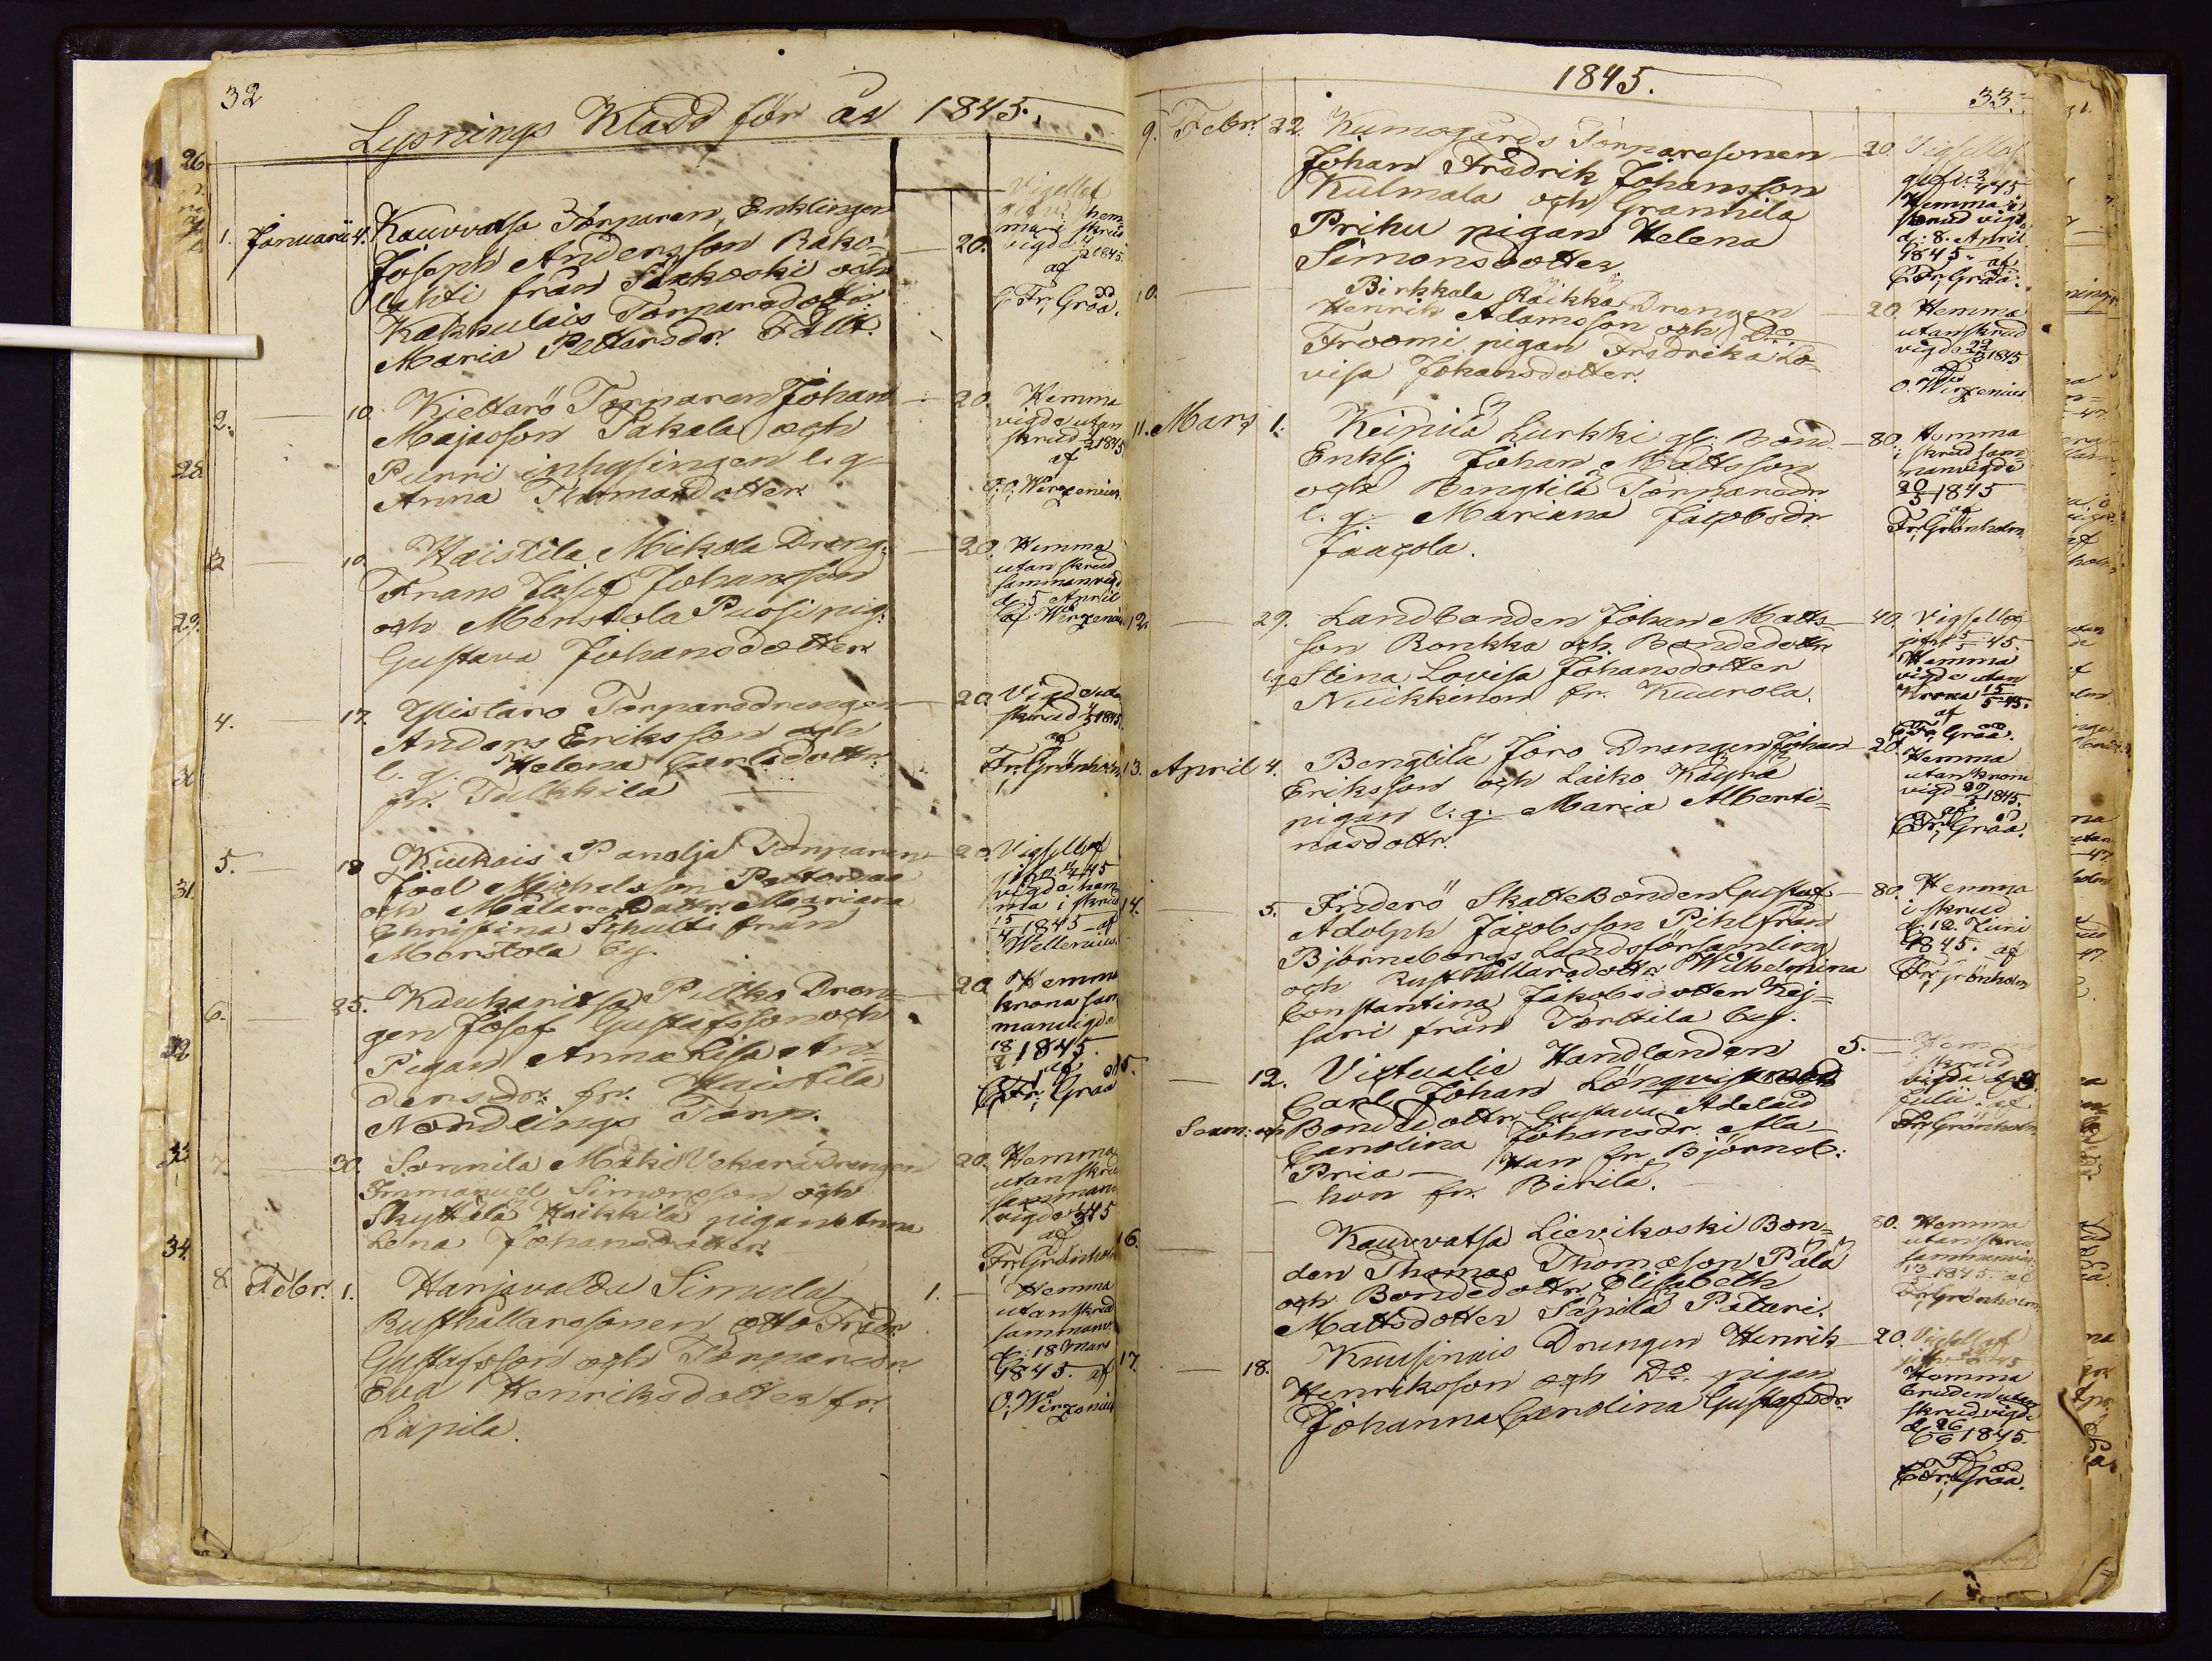 32
Lysnings Kladd för år 1845.
1. Januarii 4. Kauvvatsa Torparen, Enklingen
Joseph Andersson Rako-
lahti från Säxkoski och
Kakkulais Torparedottr.
Maria Pettersdr. Fällt.
20.
Vigsellof
hem-
ma i skrud
vigde
1845.
af
C. Fr. Gråå.
2. 10. Kjettarö Torparen Johan
Majasson Takala och
Purri inhysingen l. q.
Anna Thomasdotter.
20. Hemma
vigde utan
skrud 1845
af
O. Wirzenius.
3 10. Haistila Mikola Dreng.
Frans Josef Johansson
och Merstola Puosi pig.
Gustava Johansdotter
20. Hemma
utan skrud
sammanvigd
d. 5 April
af Wirzenius
4. 17. Ylistaro Torparedrengen
Anders Eriksson och
l. q. Helena Carlsdottr.
fr. Tulkkila
20. Vigde utan
skrud 1845.
af
Fr. Grönholm
5. 18 Kiukais Panelja Torparen
Joel Michelsson
och Målare Dottr. Mariana
Christina Schulti från
Merstola by.
20. Vigsellof
45
vigde hem-
ma i skrud
15/4 1845 - af
Wellenius.
6. 25. Kauharitsa Pirko Dren-
gen Josef Gustafsson och
Pigan Anna Lisa An-
dersdr. fr. Haistila
Nordlings Torp.
20 Hemma
krona sam
manvigde
18/2 1845.
af
C. Fr. Gråå
7. 30. Sonnila Mäki Vekara Drengen
Immanuel Simonsson och
Skyttälä Heikkilä pigan Anna
Lena Johansdotter.
20. Hemma
utan skrud
samman
vigde 45
af
Fr. Grönholm
8. Febr. 1. Harjavalda Simula
Rusthållaresonen Otto Fredr.
Gustafsson och Torparedr.
Eva Henriksdotter fr.
Lapila.
1. Hemma
utan skrud
sammanv.
d. 18 Mars
1845. af
O. Wirzenius
1845.
33.
9. Febr. 22. Kumogårds Torparesonen
Johan Fredrik Johansson
Kulmala och Grannila
Prihu pigan Helena
Simonsdotter
20. Vigsellof
gifv. 45
Hemma i
skrud vigde
d. 8. April
1845 - af
C. Fr. Gråå.
10. Birkkala Räikkä Drengen
Henrik Adamsson och Do
Froomi pigan Fredrika Lo-
visa Johansdotter.
20. Hemma
utan skrud
vigde 1845
af
O. Wirzenius
11. Mars 1. Keipiä Lurkki gl. Bond.
Enkl. Johan Mattsson
och Bengtilä Torparedr.
l. q. Mariana Jacobsdr.
Jaacola.
80. Hemma
i skrud sam-
manvigde
20/5 1845
af
Fr. Grönholm
12. 29. Landbonden Johan Matts-
son Ronkka och Bondedottr.
l. q. Stina Lovisa Johansdotter
Nuikkenen fr. Kuurola.
40. Vigsellof
45.
Hemma
vigde utan
krona 15/5 45.
af
C. Fr. Gråå.
13. April 4. Bengtilä Joro Drengen Johan
Eriksson och Laiko Käynä
pigan l. q. Maria Alberti-
nasdottr.
20. Hemma
utan krona
vigd 1845.
af
C. Fr. Gråå.
14. 5. Inderö SkatteBonden Gustaf
Adolph Jacobsson Pihl från
Björneborgs Landsförsamling
och Rusthållaredottr. Wilhelmina
Constantina Jakobsdotter Kej-
sari från Torttila by.
80. Hemma
i skrud
d. 12. Juni
1845. af
Fr. Grönholm
15. 12. Victualie Handlanden
Carl Johan Lönqvist och
Bondedottr. Gustava Adelaid
Carolina Johansdr. Ala
Pria - Han fr. Björneb.
- hon fr. Berila.
5. Hemma
i skrud
vigde
Julii. af
Fr. Grönholm
16. Kauvvatsa Lievikoski Bon-
den Thomas Thomæson Pälä
och Bondedottr. Elisabeth
Mattsdotter Säpilä Paturi.
80. Hemma
utan skrud
sammanvig.
13/5 1845. af
Fr. Grönholm
17. 18. Kruusinais Drengen Henrik
Henriksson och Do. pigan
Johanna Carolina Gustafsdr.
20. Vigsellof
Hemma
bruden utan
skrud vigde
d. 26/6 1845.
af
C. Fr. Gråå.